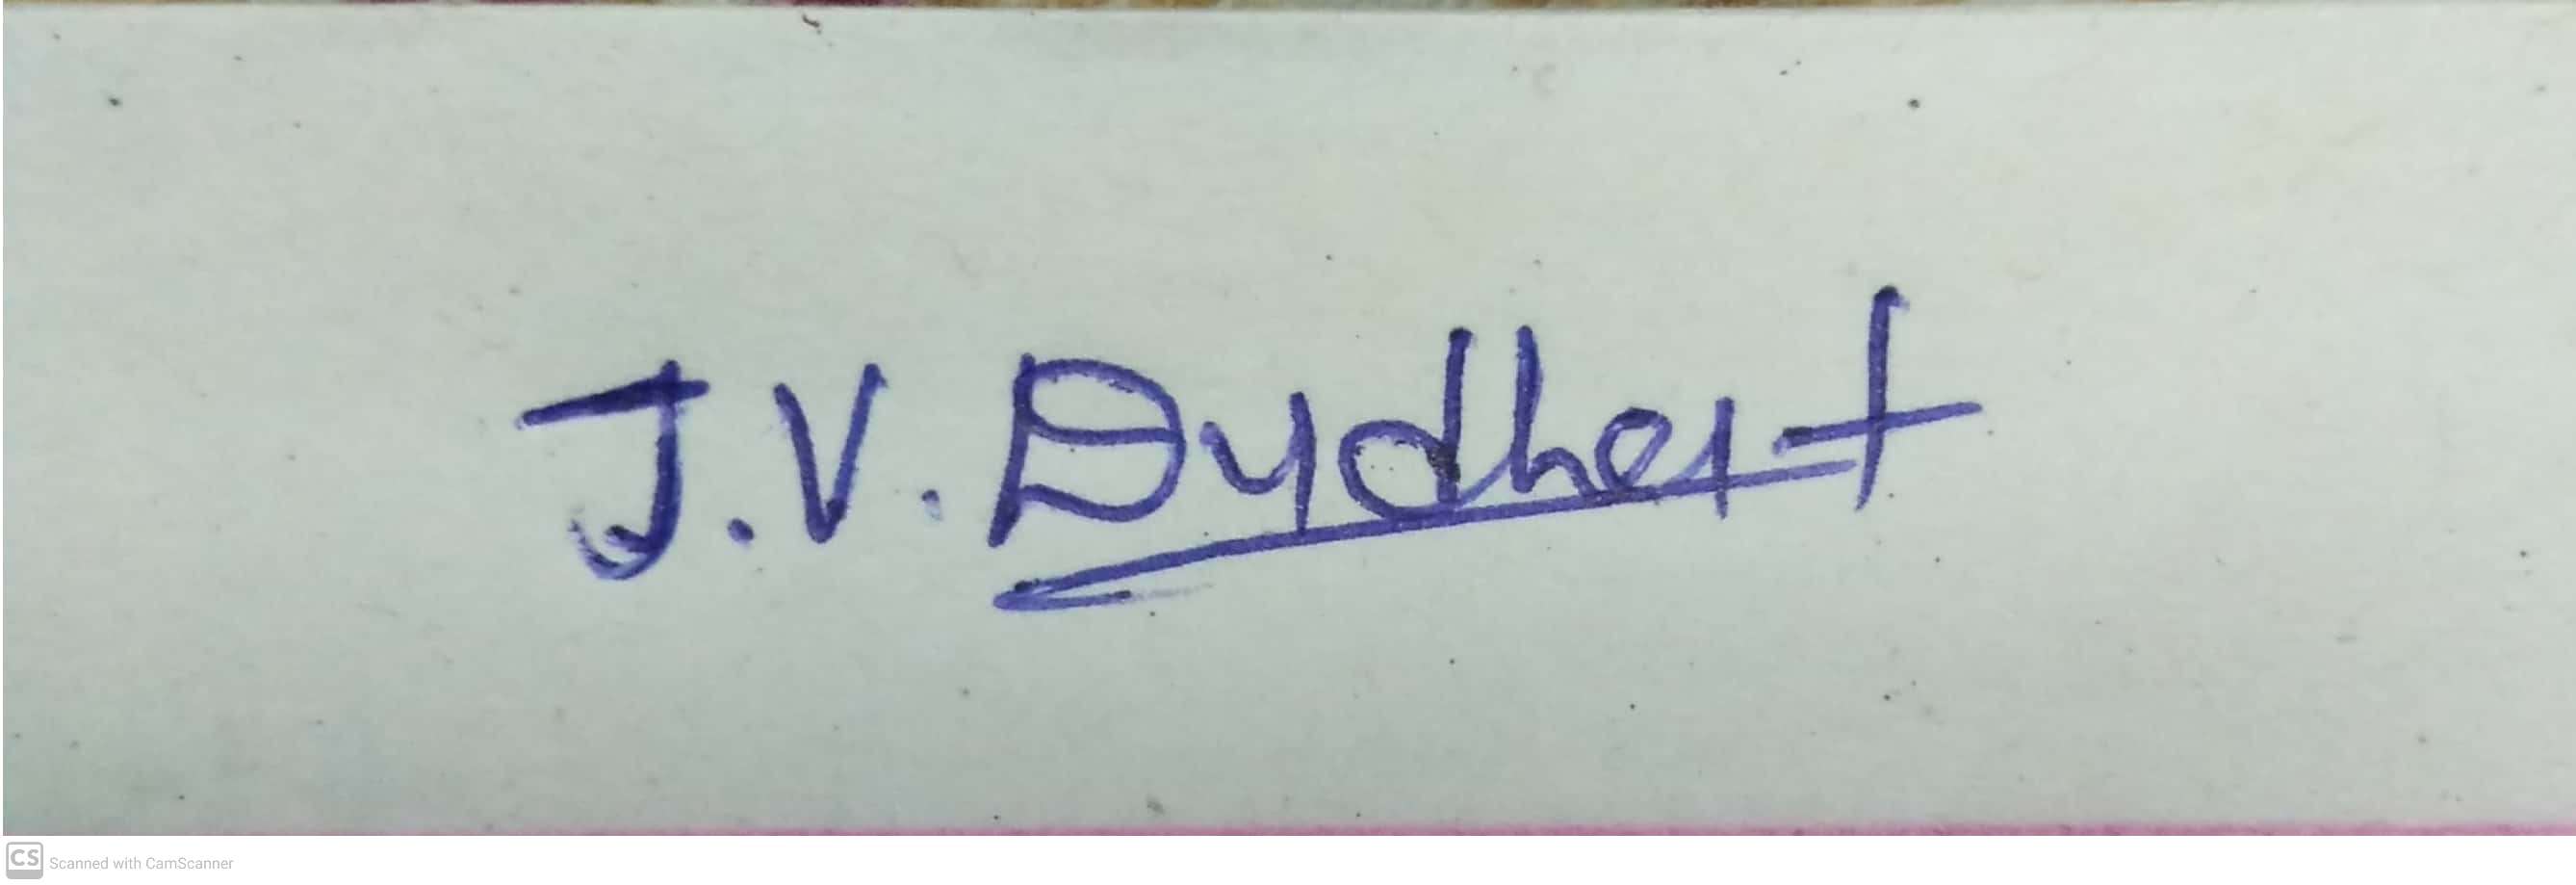 J.V. Dudhat
CS Scanned with CamScanner